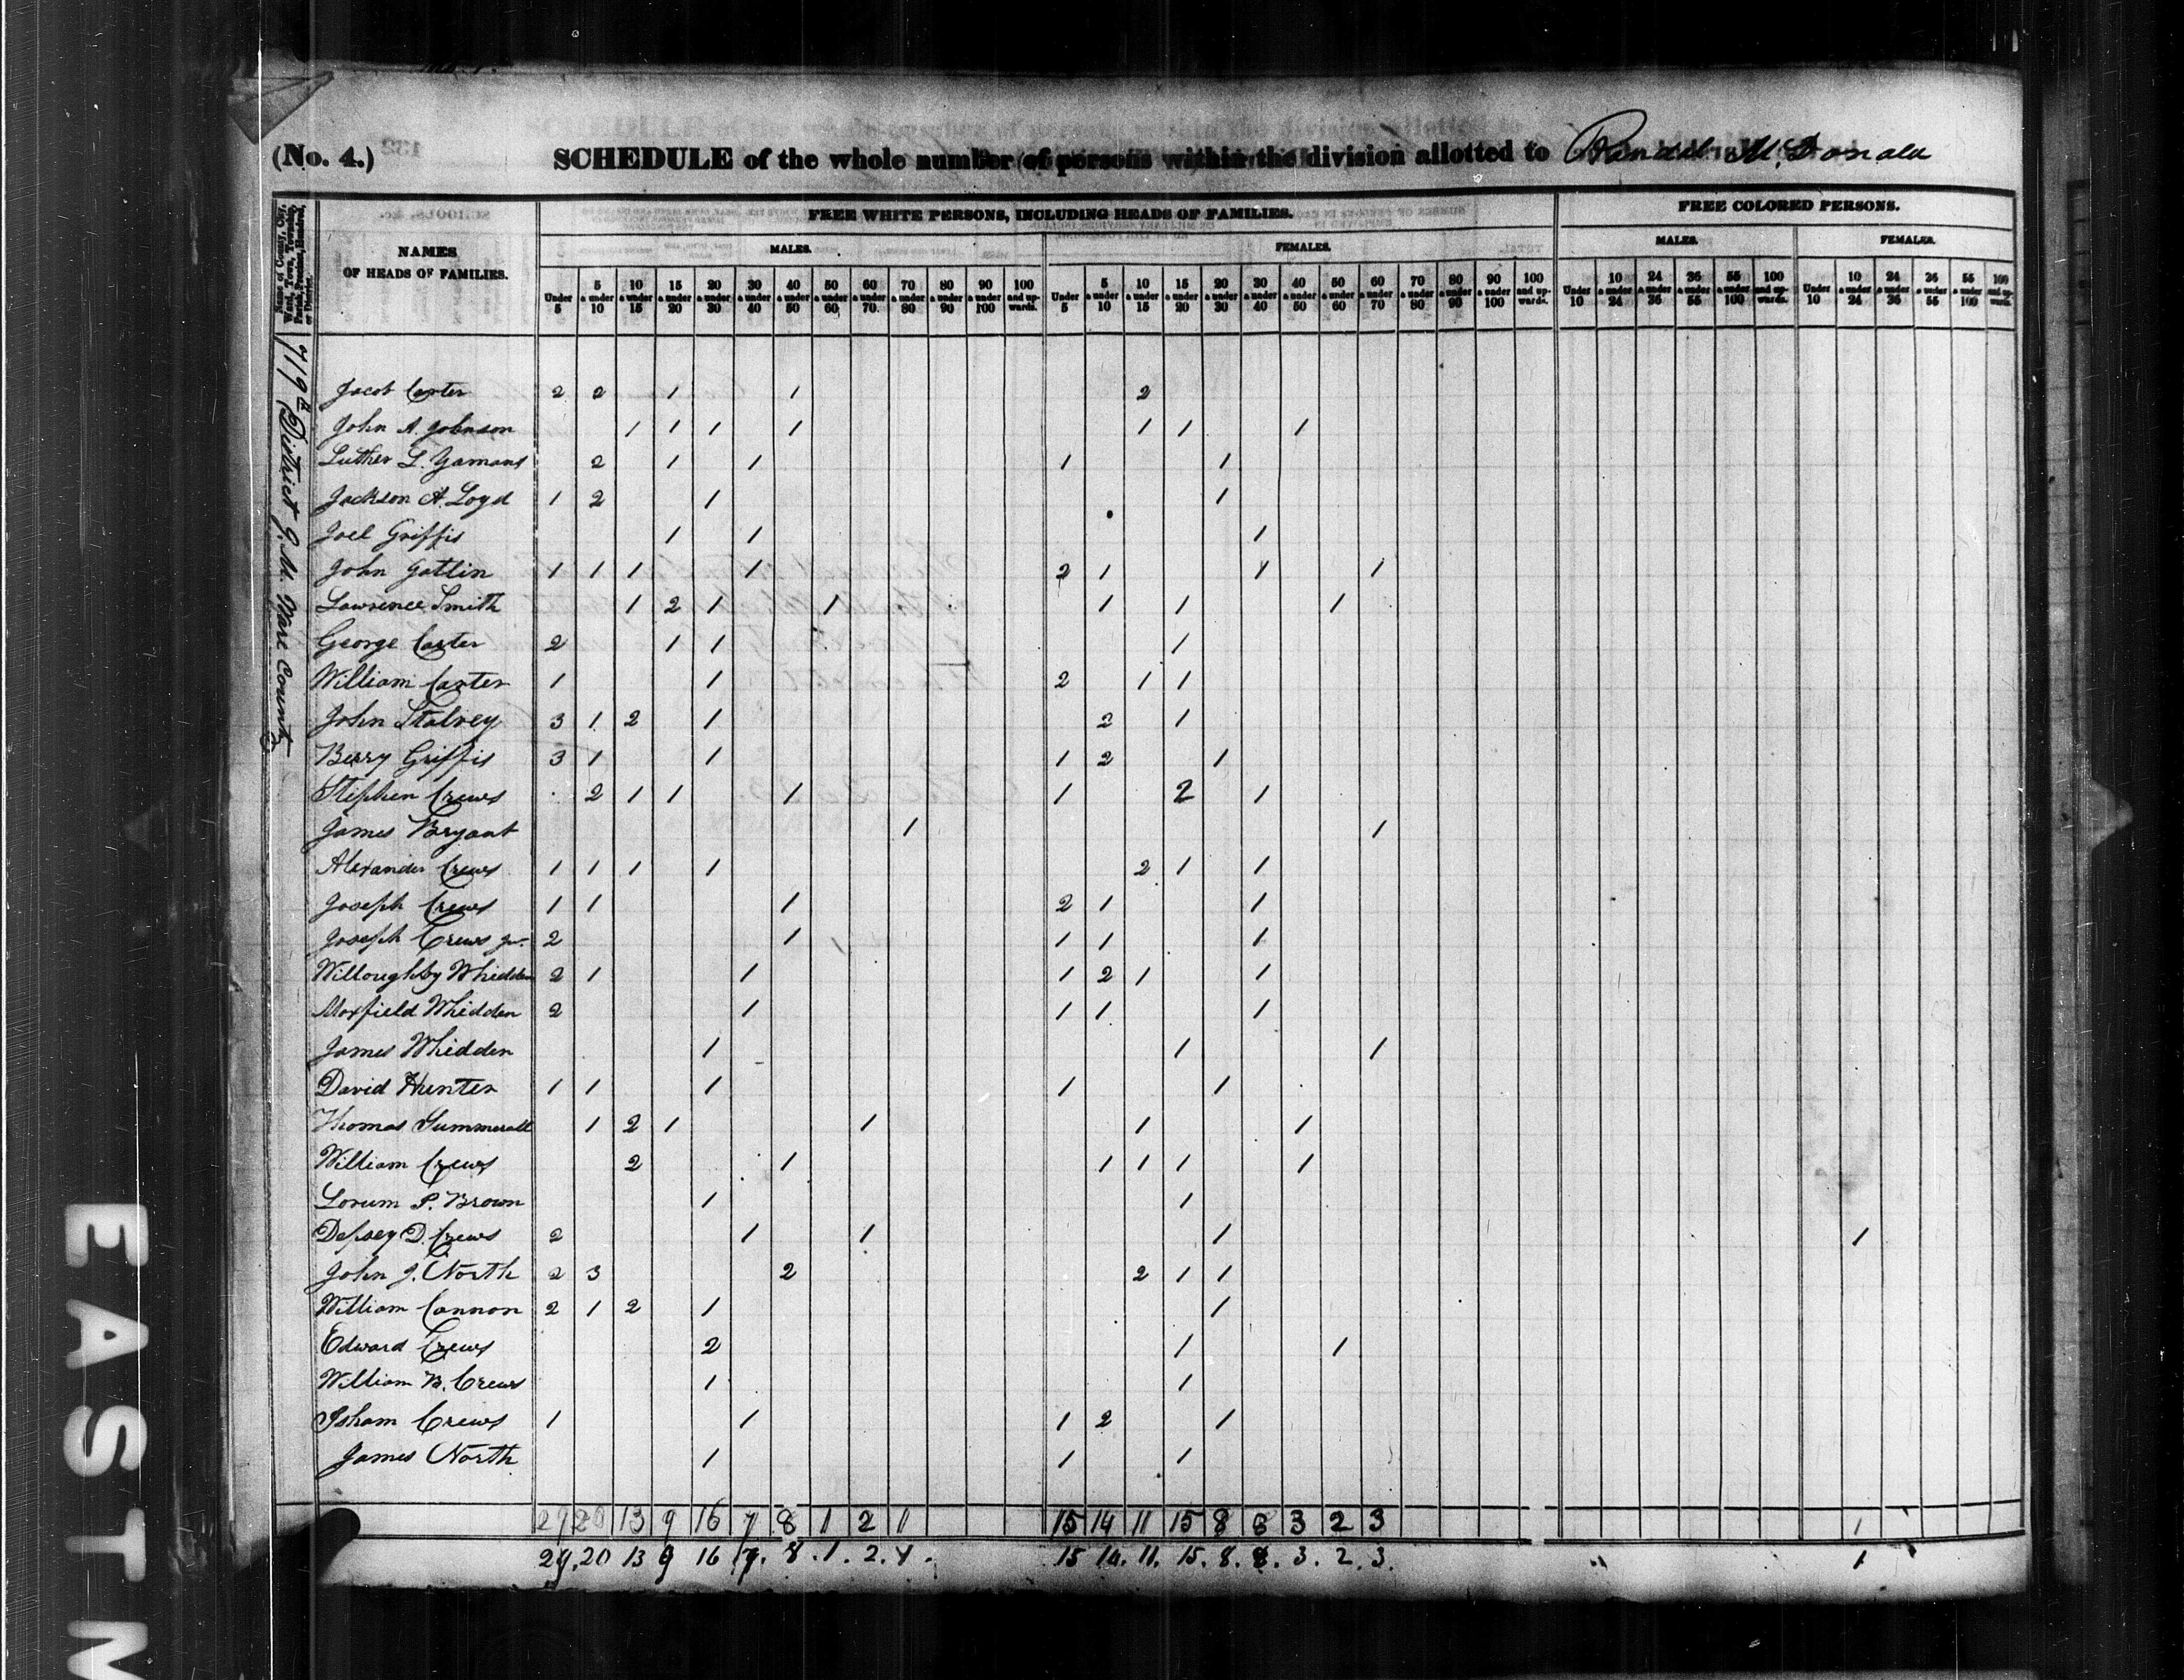 (No. 4.)
SCHEDULE of the whole number of persons within the division allotted to Randal McDonald
Name of County, City, Ward, Town, Township, Parish, Precinct, Hundred, or District.
719th District G. M. Ware County
NAMES
OF HEADS OF FAMILIES.
FREE WHITE PERSONS, INCLUDING HEADS OF FAMILIES.
FREE COLORED PERSONS.
MALES. FEMALES. MALES. FEMALES.
Under 5 | 5 & under 10 | 10 & under 15 | 15 & under 20 | 20 & under 30 | 30 & under 40 | 40 & under 50 | 50 & under 60 | 60 & under 70 | 70 & under 80 | 80 & under 90 | 90 & under 100 | 100 and upwards.
Under 5 | 5 & under 10 | 10 & under 15 | 15 & under 20 | 20 & under 30 | 30 & under 40 | 40 & under 50 | 50 & under 60 | 60 & under 70 | 70 & under 80 | 80 & under 90 | 90 & under 100 | 100 and upwards.
Under 10 | 10 & under 24 | 24 & under 36 | 36 & under 55 | 55 & under 100 | 100 and upwards.
Under 10 | 10 & under 24 | 24 & under 36 | 36 & under 55 | 55 & under 100 | 100 and upwards.
Jacob Carter 2 2 1 1 2
John A. Johnson 1 1 1 1 1 1 1
Luther L. Yamans 2 1 1 1 1
Jackson A. Loyd 1 2 1 1
Joel Griffis 1 1 1
John Gatlin 1 1 1 1 2 1 1 1
Lawrence Smith 1 2 1 1 1 1 1
George Carter 2 1 1 1
William Carter 1 1 2 1 1
John Stalvey 3 1 2 1 2 1
Berry Griffis 3 1 1 1 2 1
Stephen Crews 2 1 1 1 1 2 1
James Bryant 1 1
Alexander Crews 1 1 1 1 2 1 1
Joseph Crews 1 1 1 2 1 1
Joseph Crews jr. 2 1 1 1 1
Willoughby Whidden 2 1 1 1 2 1 1
Maxfield Whidden 2 1 1 1 1
James Whidden 1 1 1
David Hunter 1 1 1 1 1
Thomas Summerall 1 2 1 1 1 1
William Crews 2 1 1 1 1 1
Lorum P. Brown 1 1
D. Crews 2 1 1 1 1
John J. North 2 3 2 2 1 1
William Cannon 2 1 2 1 1
Edward Crews 2 1 1
William B. Crews 1 1
Isham Crews 1 1 1 2 1
James North 1 1 1
29 20 13 9 16 7 8 1 2 1 15 14 11 15 8 8 3 2 3 1
29. 20 13 9 16 7. 8. 1. 2. 1. 15 14. 11. 15. 8. 8. 3. 2. 3. 1
EASTM